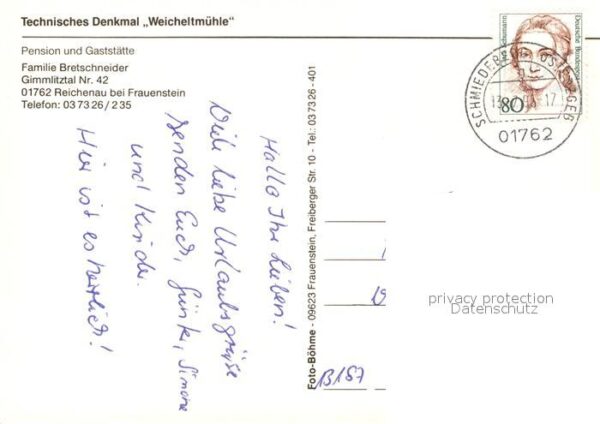 Technisches Denkmal „Weicheltmühle"
Pension und Gaststätte
Familie Bretschneider
Gimmlitztal Nr. 42
01762 Reichenau bei Frauenstein
Telefon: 03 73 26 / 2 35
Hallo Ihr Lieben!
Viele liebe Urlaubsgrüße
senden Euch, Simone
und Kinder.
Hier ist es herrlich!
Foto-Böhme - 09623 Frauenstein, Freiberger Str. 10 - Tel.: 03 73 26 - 401
Deutsche Bundespost
80
SCHMIEDEBERG, OSTERZGEB
01762
B157
privacy protection
Datenschutz